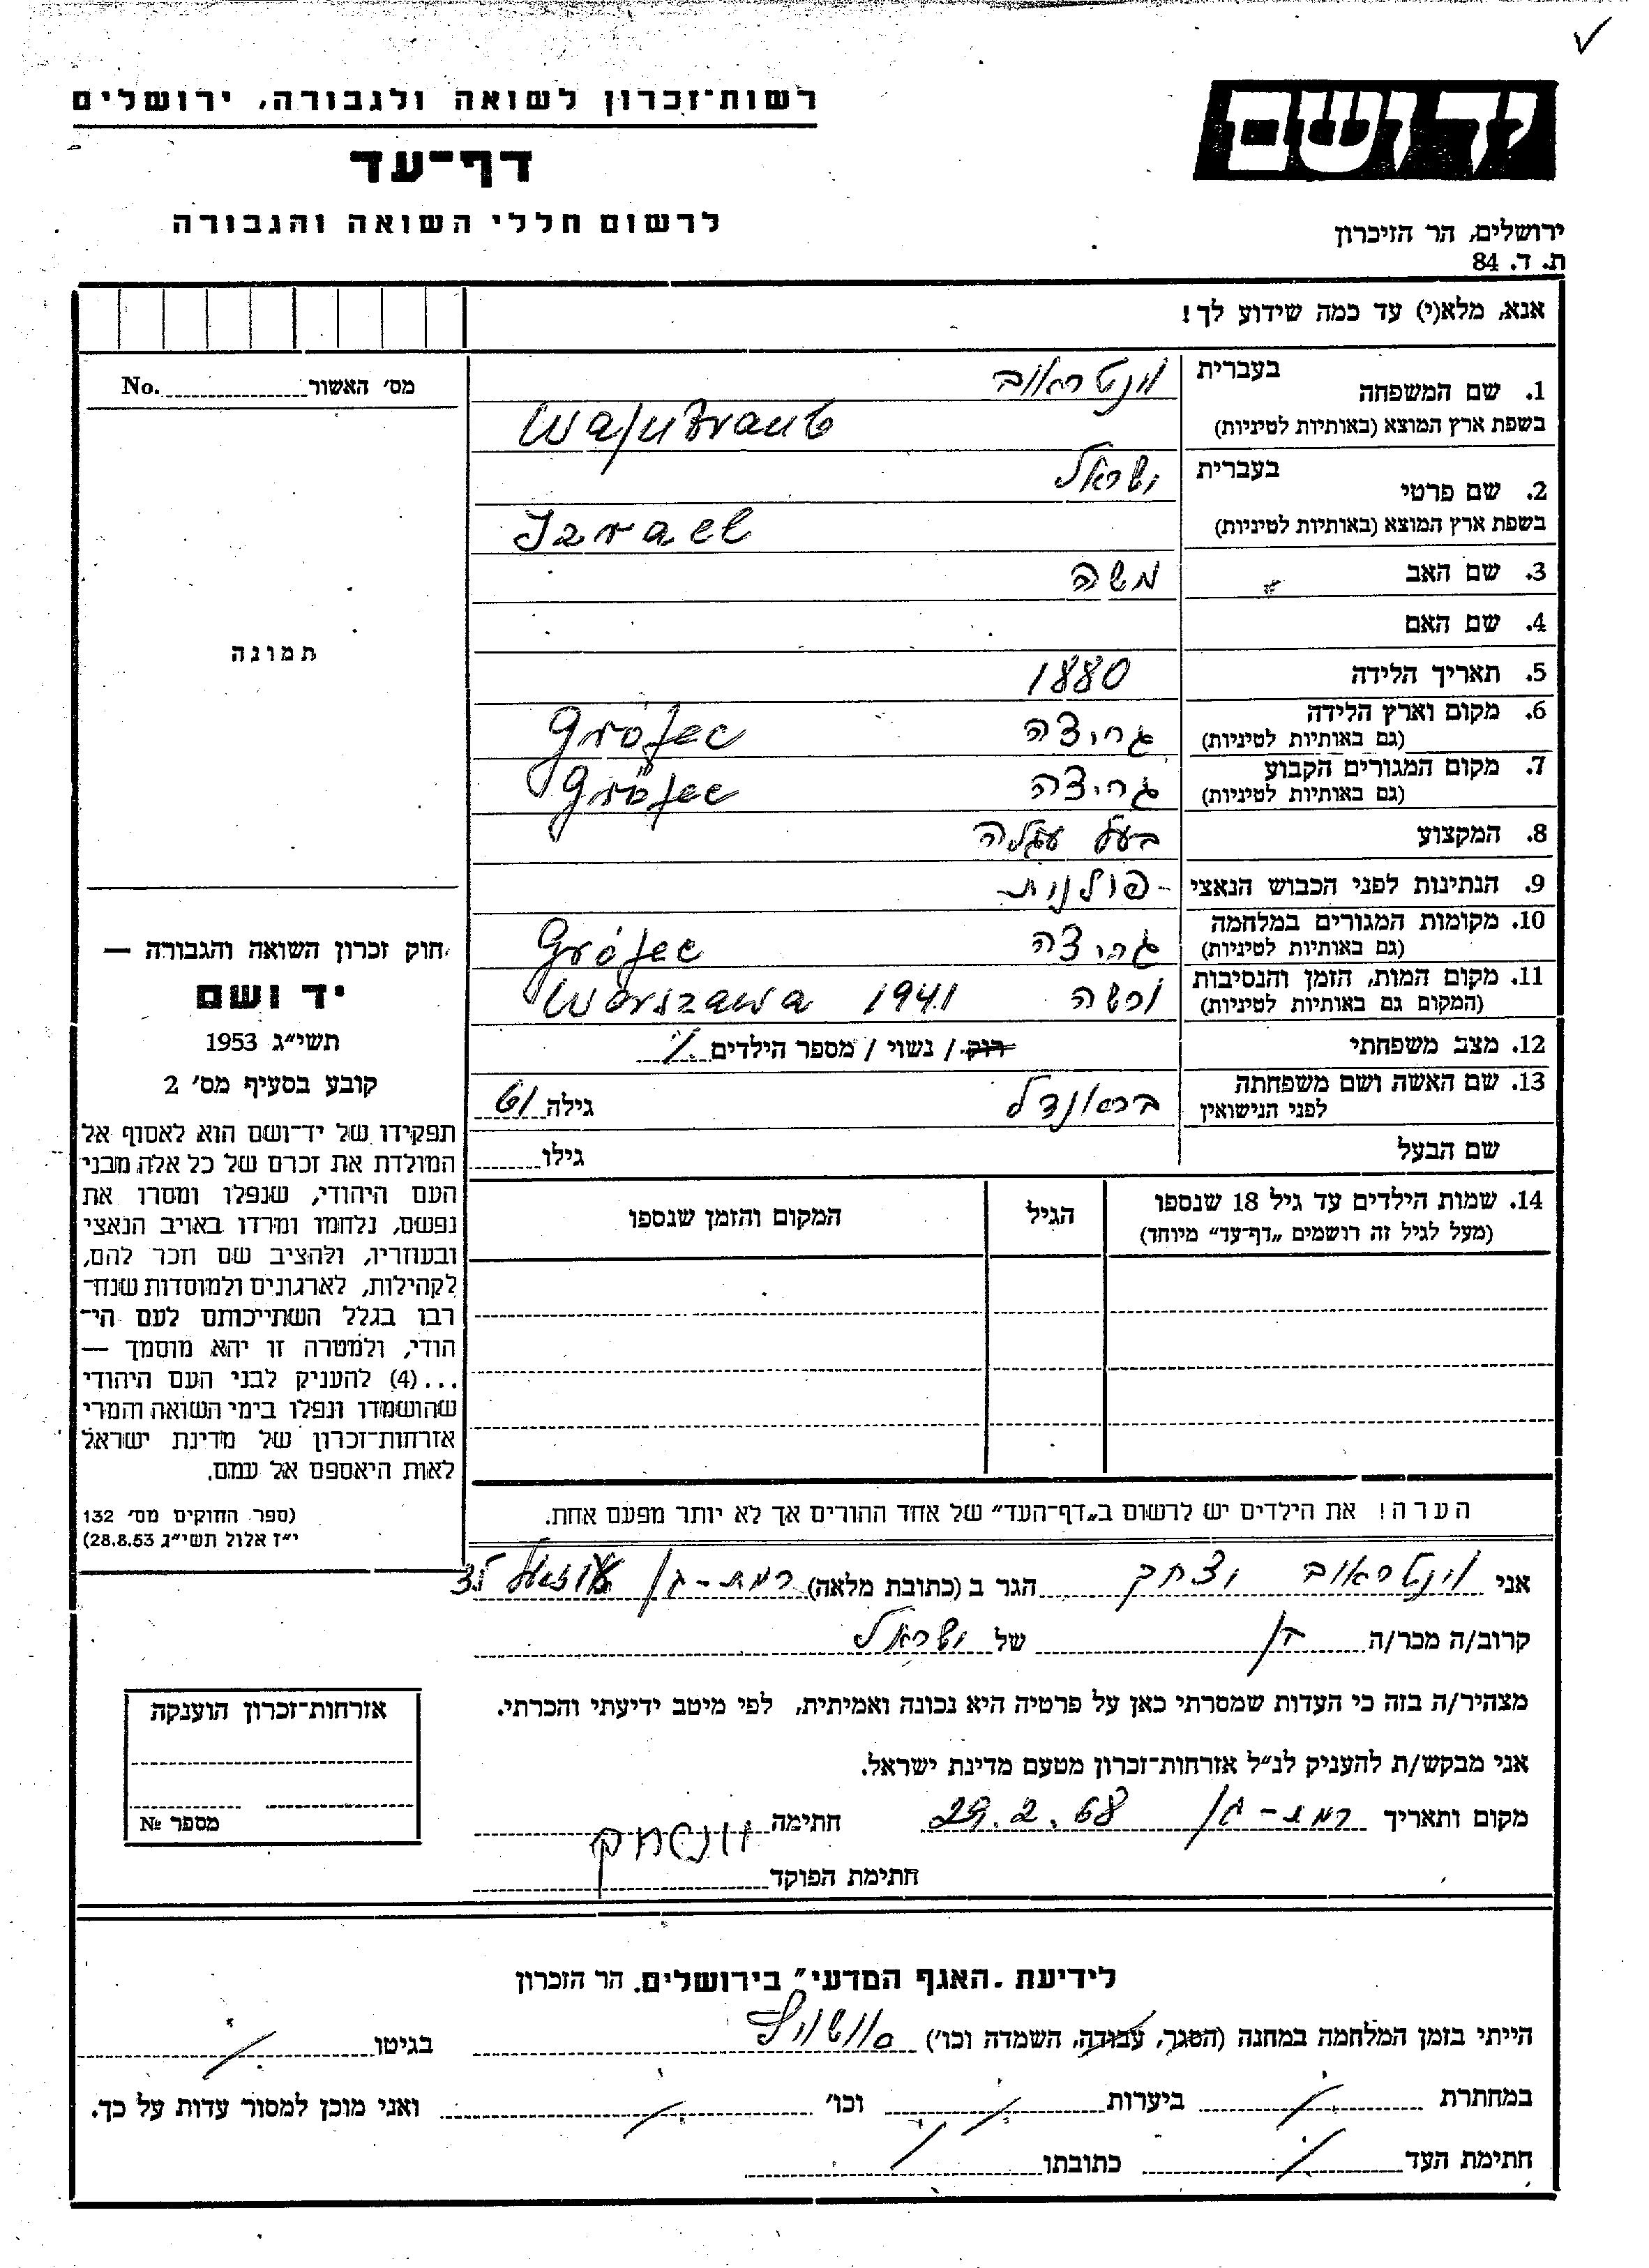 רשות־זכרון לשואה ולגבורה, ירושלים
דף־עד
לרשום חללי השואה והגבורה
יד ושם
ירושלים, הר הזיכרון
ת. ד. 84
אנא, מלא(י) עד כמה שידוע לך!
1. שם המשפחה
בעברית וינטראוב
בשפת ארץ המוצא (באותיות לטיניות) Wajntraub
2. שם פרטי
בעברית ישראל
בשפת ארץ המוצא (באותיות לטיניות) Izrael
3. שם האב משה
4. שם האם
5. תאריך הלידה 1880
6. מקום וארץ הלידה גרויצה Grójec
(גם באותיות לטיניות)
7. מקום המגורים הקבוע גרויצה Grójec
(גם באותיות לטיניות)
8. המקצוע בעל עגלה
9. הנתינות לפני הכבוש הנאצי פולנית
10. מקומות המגורים במלחמה גרויצה Grójec
(גם באותיות לטיניות)
11. מקום המות, הזמן והנסיבות ורשה 1941 Warszawa
(המקום גם באותיות לטיניות)
12. מצב משפחתי רוק / נשוי / מספר הילדים
13. שם האשה ושם משפחתה בראנדל גילה 61
לפני הנישואין
שם הבעל גילו
14. שמות הילדים עד גיל 18 שנספו הגיל המקום והזמן שנספו
(מעל לגיל זה רושמים „דף־עד״ מיוחד)
הערה! את הילדים יש לרשום ב„דף־העד״ של אחד ההורים אך לא יותר מפעם אחת.
מס׳ האשור No.
תמונה
חוק זכרון השואה והגבורה —
יד ושם
תשי״ג 1953
קובע בסעיף מס׳ 2
תפקידו של יד־ושם הוא לאסוף אל
המולדת את זכרם של כל אלה מבני
העם היהודי, שנפלו ומסרו את
נפשם, נלחמו ומרדו באויב הנאצי
ובעוזריו, ולהציב שם וזכר להם,
לקהילות, לארגונים ולמוסדות שנח־
רבו בגלל השתייכותם לעם הי־
הודי, ולמטרה זו יהא מוסמך —
...(4) להעניק לבני העם היהודי
שהושמדו ונפלו בימי השואה והמרי
אזרחות־זכרון של מדינת ישראל
לאות היאספם אל עמם.
(ספר החוקים מס׳ 132
י״ז אלול תשי״ג 28.8.53)
אני וינטראוב יצחק הגר ב (כתובת מלאה) רמת-גן עוזיאל 35
קרוב/ה מכר/ה בן של ישראל
מצהיר/ה בזה כי העדות שמסרתי כאן על פרטיה היא נכונה ואמיתית, לפי מיטב ידיעתי והכרתי.
אני מבקש/ת להעניק לנ״ל אזרחות־זכרון מטעם מדינת ישראל.
מקום ותאריך רמת-גן 29.2.68 חתימה
חתימת הפוקד
אזרחות־זכרון הוענקה
מספר №
לידיעת „האגף המדעי״ בירושלים, הר הזכרון
הייתי בזמן המלחמה במחנה (הסגר, עבודה, השמדה וכו׳) בגיטו
במחתרת ביערות וכו׳ ואני מוכן למסור עדות על כך.
חתימת העד כתובתו